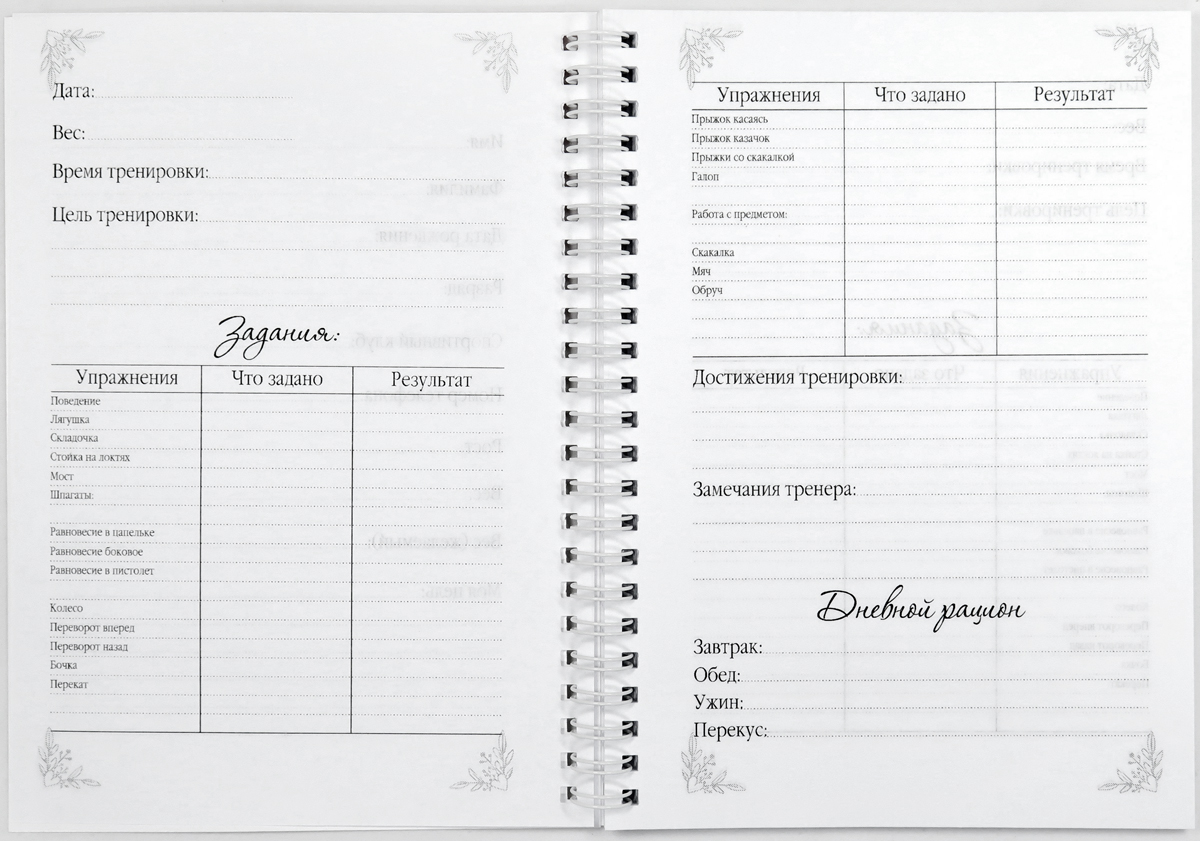 Дата:
Вес:
Время тренировки:
Цель тренировки:
Задания:
Упражнения Что задано Результат
Поведение
Лягушка
Складочка
Стойка на локтях
Мост
Шпагаты:
Равновесие в цапельке
Равновесие боковое
Равновесие в пистолет
Колесо
Переворот вперед
Переворот назад
Бочка
Перекат
Упражнения Что задано Результат
Прыжок касаясь
Прыжок казачок
Прыжки со скакалкой
Галоп
Работа с предметом:
Скакалка
Мяч
Обруч
Достижения тренировки:
Замечания тренера:
Дневной рацион
Завтрак:
Обед:
Ужин:
Перекус: